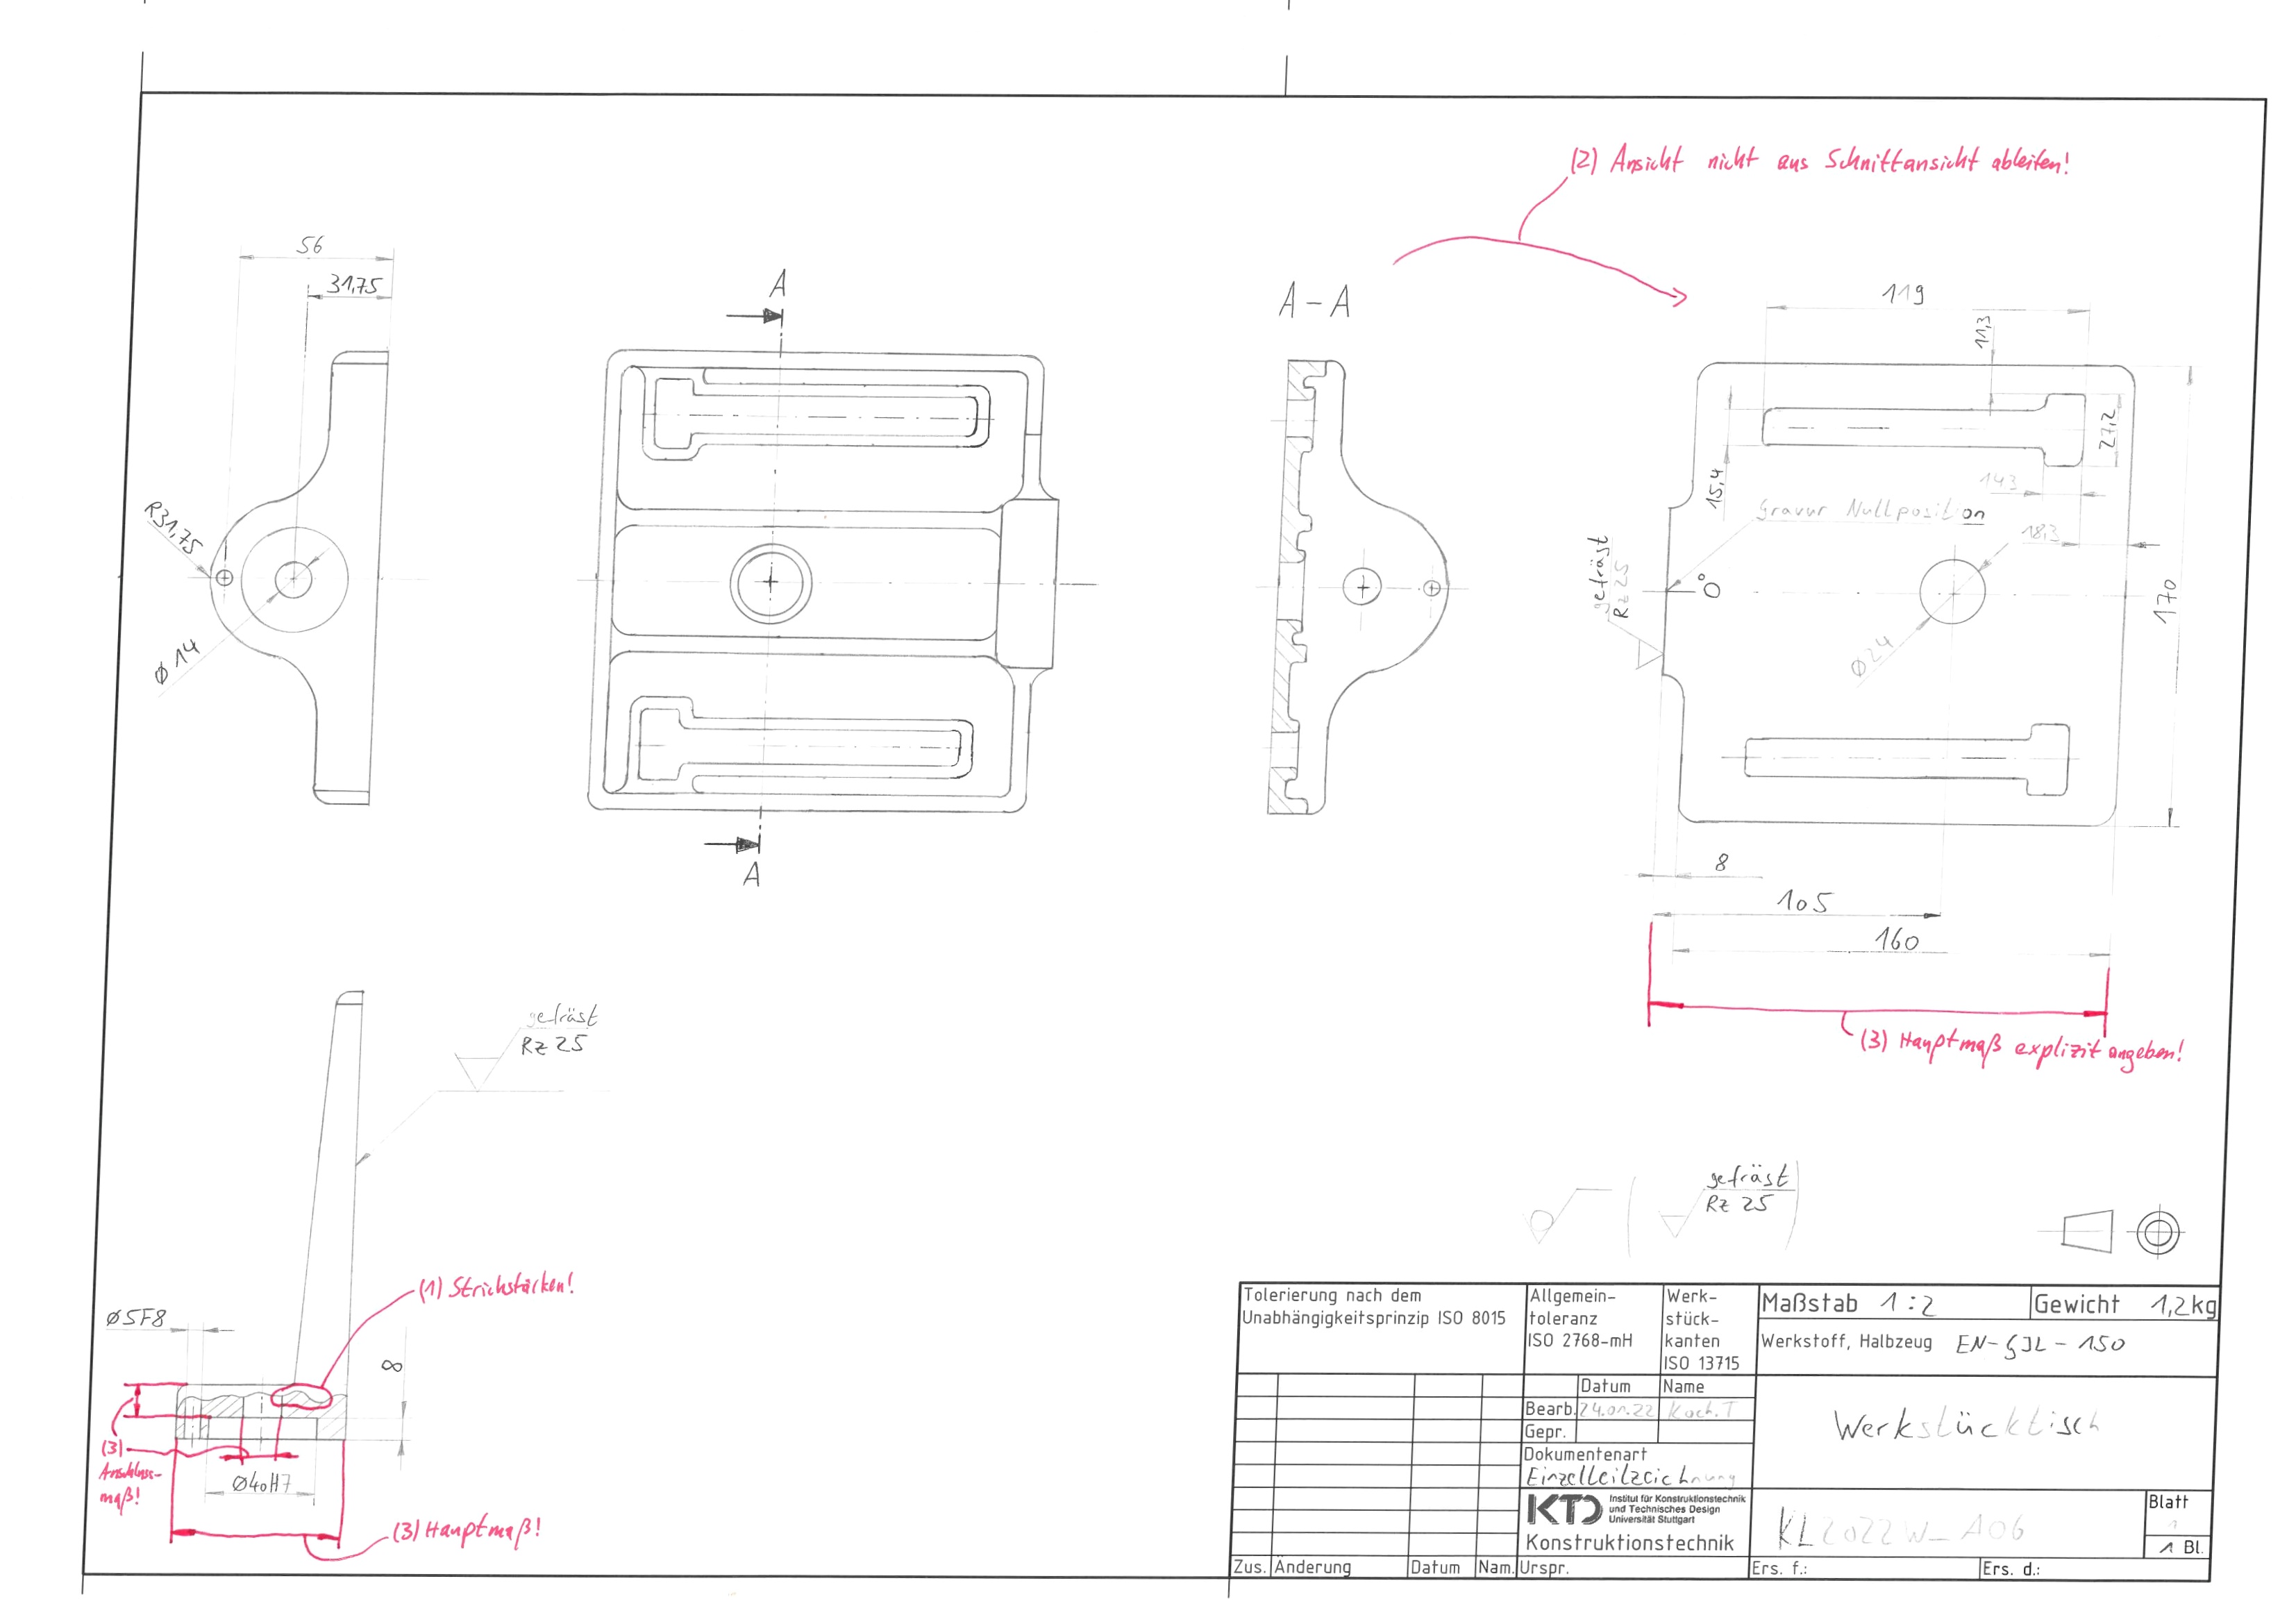 (2) Ansicht nicht aus Schnittansicht ableiten!
56
31,75
A
A-A
119
11,3
27,2
15,4
R31,75
14,3
Gravur Nullposition
18,3
gefräst
Rz 25
0°
170
Ø14
Ø24
A
8
105
160
(3) Hauptmaß explizit angeben!
gefräst
Rz 25
gefräst
Rz 25
(1) Strichstärken!
Ø5F8
8
(3)
Anschluss-
maß!
Ø40H7
(3) Hauptmaß!
Tolerierung nach dem
Unabhängigkeitsprinzip ISO 8015
Allgemein-
toleranz
ISO 2768-mH
Werk-
stück-
kanten
ISO 13715
Maßstab 1:2
Gewicht 1,2kg
Werkstoff, Halbzeug EN-GJL-150
Datum Name
Bearb. 24.01.22 Koch.T
Gepr.
Dokumentenart
Einzelteilzeichnung
Werkstücktisch
KTD Institut für Konstruktionstechnik
und Technisches Design
Universität Stuttgart
Konstruktionstechnik
KL2022W_A06
Blatt
1
1 Bl.
Zus. Änderung Datum Nam. Urspr. Ers. f.: Ers. d.: